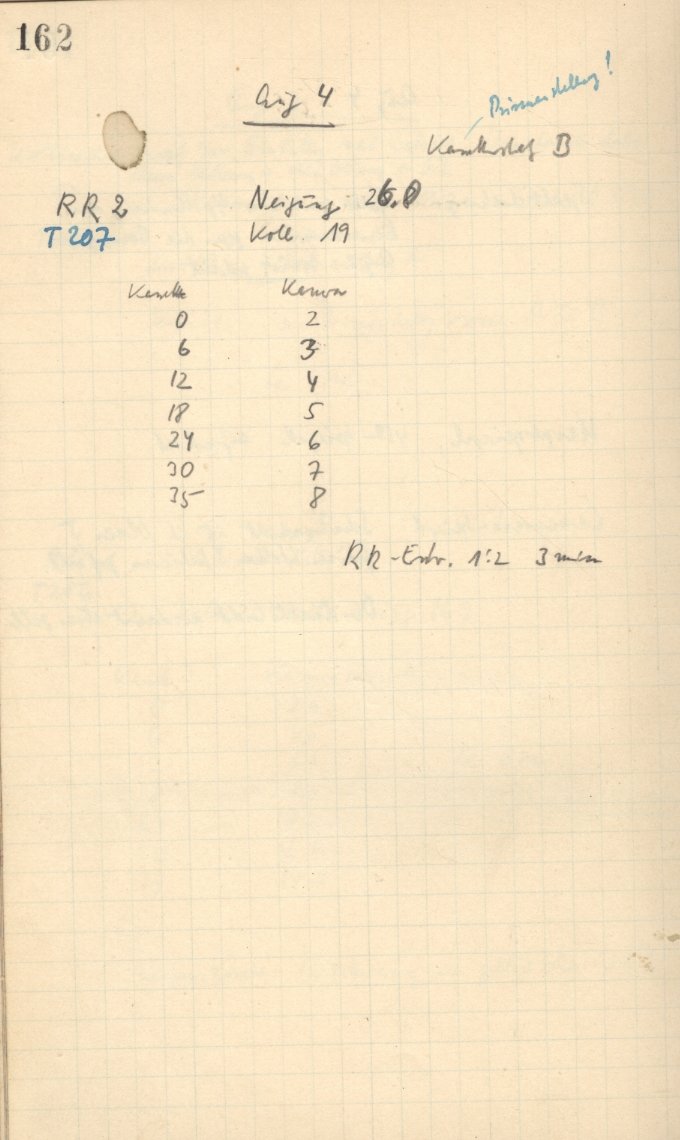 162
Aug 4
Prismenstellung!
B
RR 2 Neigung 26.8
T 207 Koll. 19
Kasette Kamera
0 2
6 3
12 4
18 5
24 6
30 7
35 8
RR-Entw. 1:2 3 min